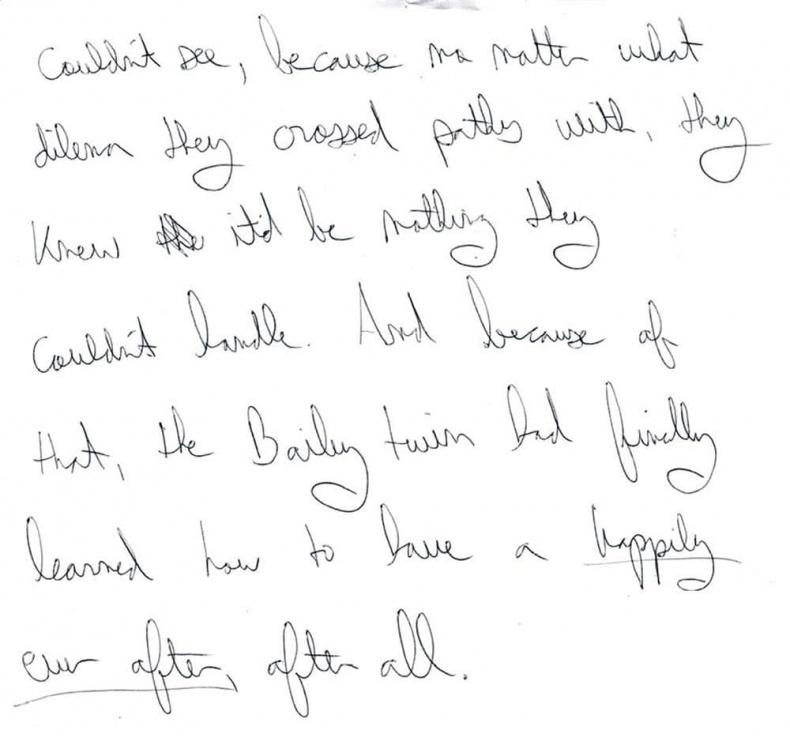 Couldn't see, because no matter what
dilema they crossed paths with, they
knew it'd be nothing they
couldn't handle. And because of
that, the Bailey twin had finally
learned how to have a happily
ever after, after all.